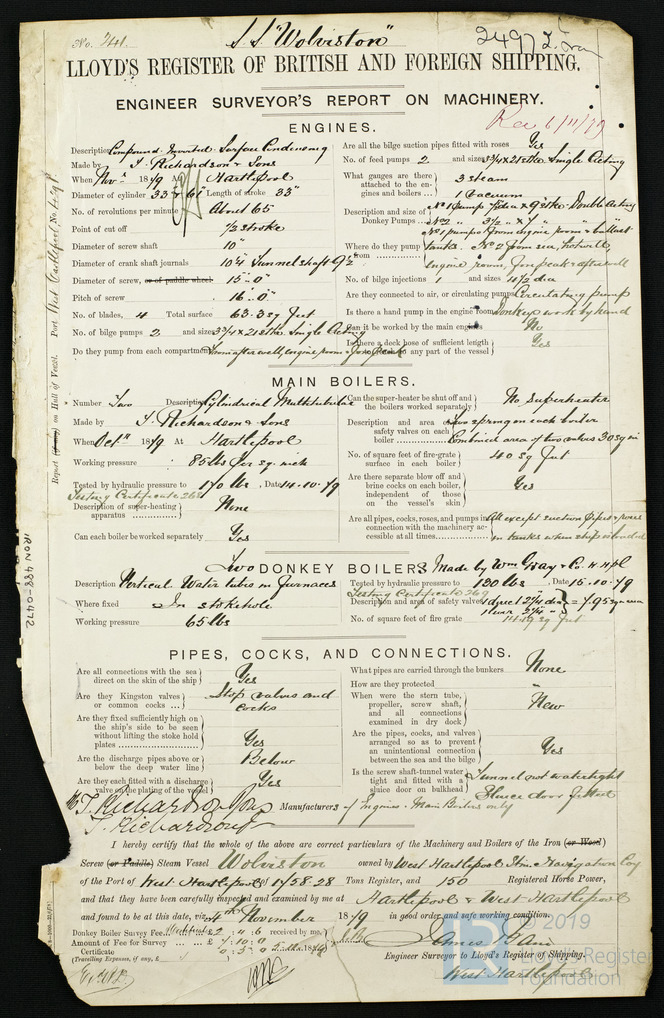 No. 741.
S.S. "Wolviston"
2497 Iron
LLOYD'S REGISTER OF BRITISH AND FOREIGN SHIPPING.
ENGINEER SURVEYOR'S REPORT ON MACHINERY.
Rec 6/11/79
ENGINES.
Description Compound Inverted Surface Condensing
Made by T. Richardson & Sons
When Novr 1879 At Hartlepool
Diameter of cylinder 33" & 61" Length of stroke 33"
No. of revolutions per minute About 65
Point of cut off 1/2 stroke
Diameter of screw shaft 10"
Diameter of crank shaft journals 10 1/4 Tunnel shaft 9 1/2
Diameter of screw, or of paddle wheel 15".0"
Pitch of screw 16".0"
No. of blades, 4 Total surface 63.3 sq feet
No. of bilge pumps 2 and sizes 3 3/4 x 21 stke Single Acting
Do they pump from each compartment From afterwell, engine room & fore peak
Are all the bilge suction pipes fitted with roses Yes
No. of feed pumps 2 and sizes 3 3/4 x 21 stke Single Acting
What gauges are there attached to the engines and boilers 3 steam
1 vacuum
Description and size of Donkey Pumps No 1 pump 9 stke Double Acting
No 2 " 3 1/2 x 7 "
Where do they pump from No 1 pumps from engine room & ballast tanks. No 2 from sea, hotwell, engine room, fore peak & afterwell
No. of bilge injections 1 and sizes 4 1/2 dia
Are they connected to air, or circulating pump Circulating pump
Is there a hand pump in the engine room Donkey work by hand
Can it be worked by the main engines No
Is there a deck hose of sufficient length to any part of the vessel Yes
Report on Hull of Vessel. Port West Hartlepool No.
MAIN BOILERS.
Number Two Description Cylindrical Multitubular
Made by T. Richardson & Sons
When Octr 1879 At Hartlepool
Working pressure 85 lbs per sq. inch
Tested by hydraulic pressure to 170 lbs. Date 14.10.79
Testing Certificate 268
Description of super-heating apparatus None
Can each boiler be worked separately Yes
Can the super-heater be shut off and the boilers worked separately No superheater
Description and area of safety valves on each boiler Two spring on each boiler
Combined area of two valves 30 sq in
No. of square feet of fire-grate surface in each boiler 40 sq feet
Are there separate blow off and brine cocks on each boiler, independent of those on the vessel's skin Yes
Are all pipes, cocks, roses, and pumps in connection with the machinery accessible at all times All except suction pipes & roses in tanks when ship is loaded
IRON 488-0472
Two DONKEY BOILERS Made by Wm Gray & Co. W. Hpl
Description Vertical Water tubes in furnaces
Where fixed In stokehole
Working pressure 65 lbs
Tested by hydraulic pressure to 120 lbs. Date 15.10.79
Testing Certificate 269
Description and area of safety valves 1 direct 2 1/4 dia
1 lever 2 1/4 " = 7.95 sq in area
No. of square feet of fire 11.49 sq feet
PIPES, COCKS, AND CONNECTIONS.
Are all connections with the sea direct on the skin of the ship Yes
Are they Kingston valves or common cocks Stop valves and cocks
Are they fixed sufficiently high on the ship's side to be seen without lifting the stoke hold plates Yes
Are the discharge pipes above or below the deep water line Below
Are they each fitted with a discharge valve on the plating of the vessel Yes
What pipes are carried through the bunkers None
How are they protected "
When were the stern tube, propeller, screw shaft, and all connections examined in dry dock New
Are the pipes, cocks, and valves arranged so as to prevent an unintentional connection between the sea and the bilge Yes
Is the screw shaft-tunnel water tight and fitted with a sluice door on bulkhead Tunnel not watertight
Sluice door fitted
T. Richardson & Sons Manufacturers of Engines & Main Boilers only
T. Richardson
I hereby certify that the whole of the above are correct particulars of the Machinery and Boilers of the Iron (or Wood)
Screw (or Paddle) Steam Vessel Wolviston owned by West Hartlepool Stm. Navigation Coy
of the Port of West Hartlepool of 1158.28 Tons Register, and 150 Registered Horse Power,
and that they have been carefully inspected and examined by me at Hartlepool & West Hartlepool
and found to be at this date, viz. 4th November 1879 in good order, and safe working condition.
Donkey Boiler Survey Fee £2 : : 6 received by me.
Amount of Fee for Survey £7:10:0
Certificate 0:5:0
(Travelling Expenses, if any, £
Engineer Surveyor to Lloyd's Register of Shipping.
West Hartlepool
© 2019
Lloyd's Register
Foundation